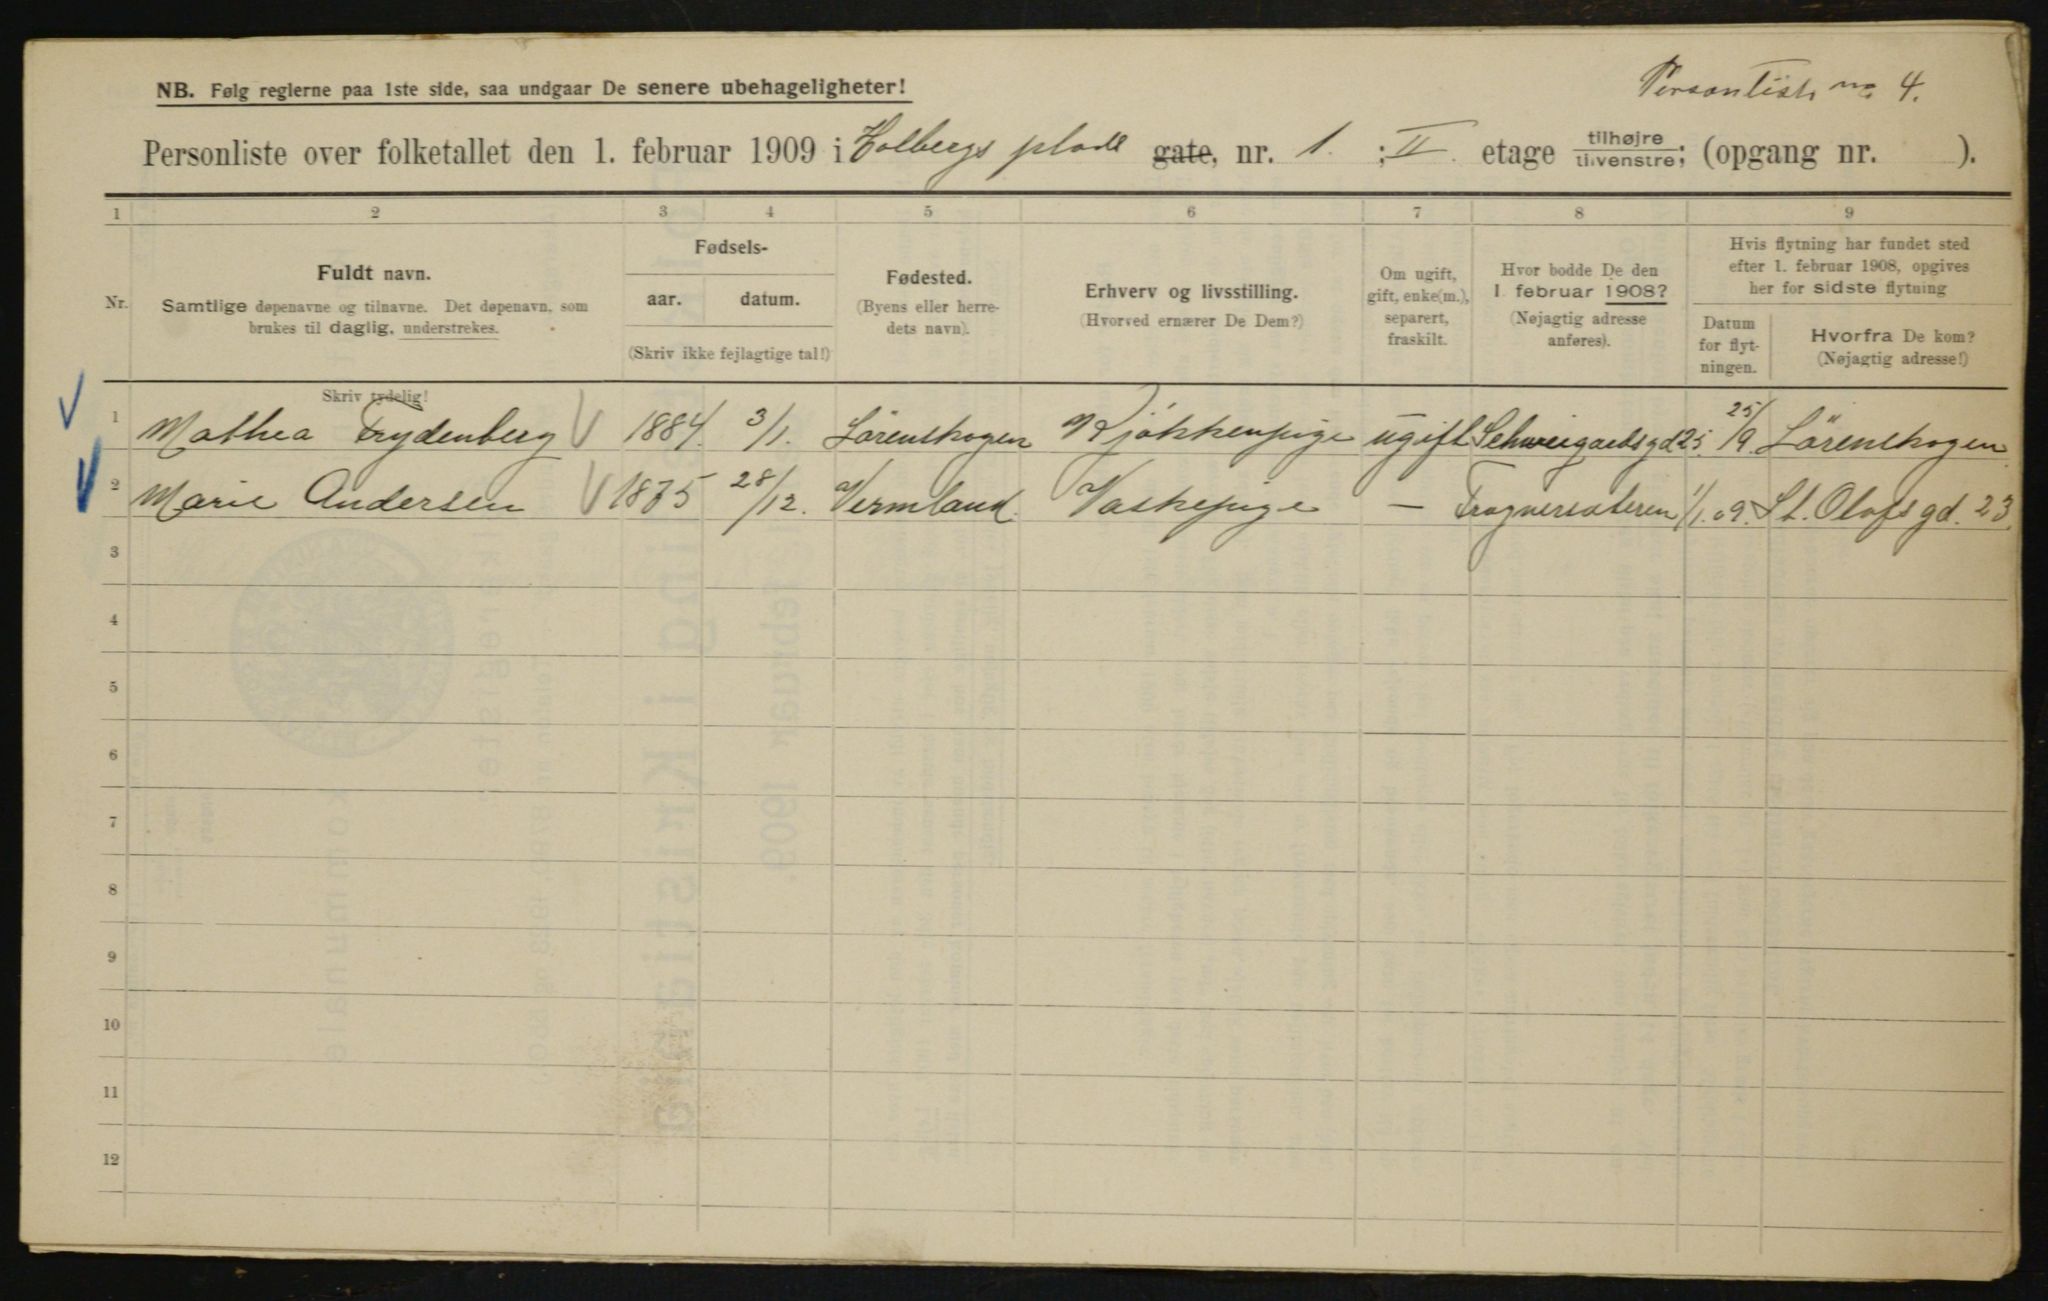 NB. Følg reglerne paa 1ste side, saa undgaar De senere ubehageligheter!
Personliste no 4.
Personliste over folketallet den 1. februar 1909 i Holbergs plads gate, nr. 1. ; II. etage tilhøjre tilvenstre; (opgang nr. ).
1 2 3 4 5 6 7 8 9
Nr.
Fuldt navn.
Samtlige døpenavne og tilnavne. Det døpenavn, som
brukes til daglig, understrekes.
Skriv tydelig!
Fødsels-
aar. datum.
(Skriv ikke fejlagtige tal!)
Fødested.
(Byens eller herre-
dets navn).
Erhverv og livsstilling.
(Hvorved ernærer De Dem?)
Om ugift,
gift, enke(m.),
separert,
fraskilt.
Hvor bodde De den
1. februar 1908?
(Nøjagtig adresse
anføres).
Hvis flytning har fundet sted
efter 1. februar 1908, opgives
her for sidste flytning
Datum
for flyt-
ningen.
Hvorfra De kom?
(Nøjagtig adresse!)
1 Mathea Frydenberg 1884. 3/1. Lörenskogen Kjøkkenpige ugift Schweigaardsgd 25. 25/9. Lörenskogen
2 Marie Andersen 1875 28/12. Vermland. Vaskepige — Frognersæteren 1/1.09. St. Olafs gd. 23.
3
4
5
6
7
8
9
10
11
12